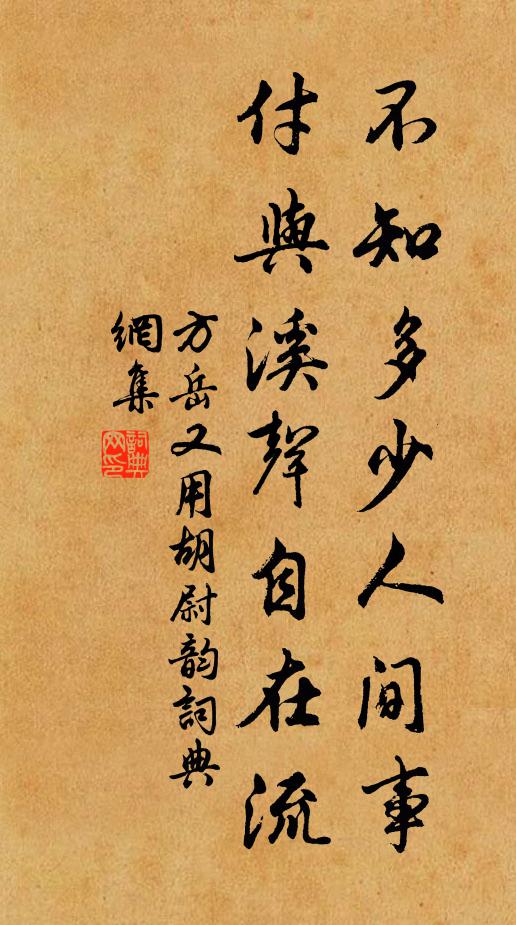 不知多少人间事
付與溪聲自在流
方岳又用胡尉韵詞典
網集
詞典
网印